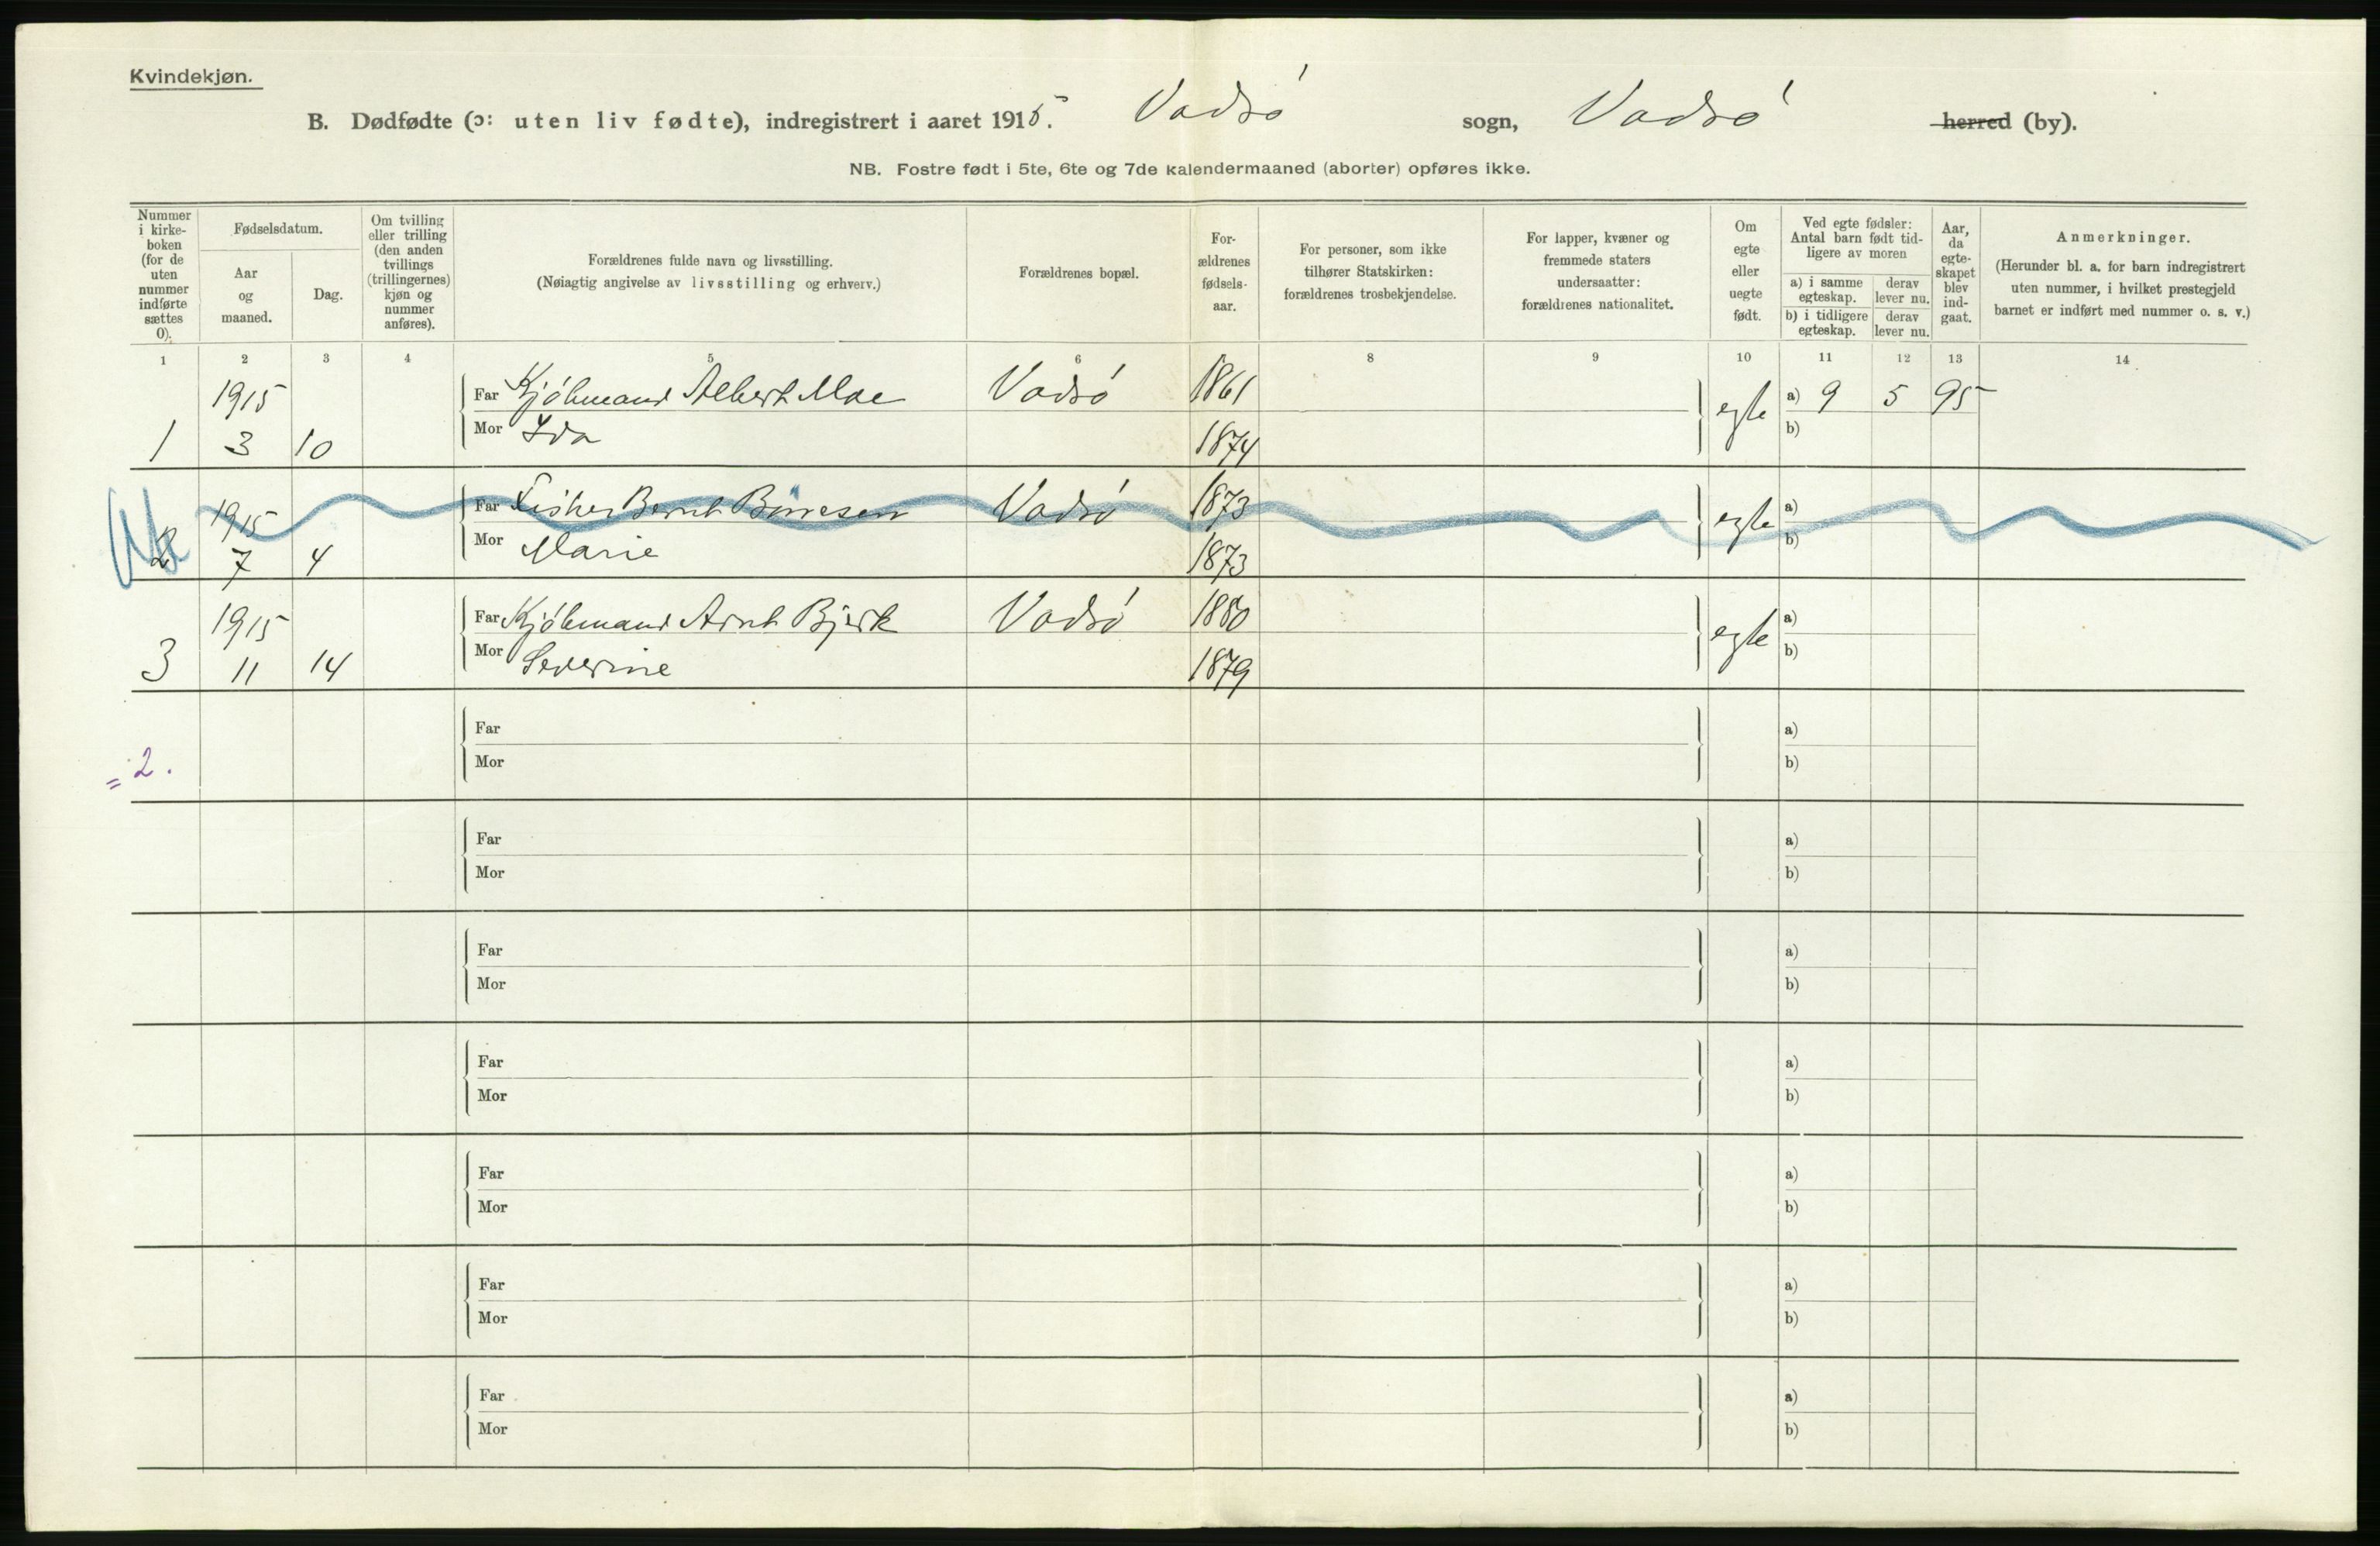 Kvindekjøn.
B. Dødfødte (ɔ: uten liv fødte), indregistrert i aaret 1915. Vadsø sogn, Vadsø herred (by).
NB. Fostre født i 5te, 6te og 7de kalendermaaned (aborter) opføres ikke.
Nummer i kirke- boken (for de uten nummer indførte sættes 0).
Fødselsdatum.
Aar og maaned.
Dag.
Om tvilling eller trilling (den anden tvillings (trillingernes) kjøn og nummer anføres).
Forældrenes fulde navn og livsstilling.
(Nøiagtig angivelse av livsstilling og erhverv.)
Forældrenes bopæl.
For- ældrenes fødsels- aar.
For personer, som ikke tilhører Statskirken: forældrenes trosbekjendelse.
For lapper, kvæner og fremmede staters undersaatter: forældrenes nationalitet.
Om egte eller uegte født.
Ved egte fødsler: Antal barn født tid- ligere av moren
a) i samme egteskap.
derav lever nu.
b) i tidligere egteskap.
derav lever nu.
Aar, da egte- skapet blev ind- gaat.
Anmerkninger.
(Herunder bl. a. for barn indregistrert uten nummer, i hvilket prestegjeld barnet er indført med nummer o. s. v.)
1 2 3 4 5 6 7 8 9 10 11 12 13 14
1915 Far Kjøbmand Albert Moe Vadsø 1861 egte a) 9 5 95
1 3 10 Mor Ida 1874 b)
1915 Far Fisker Bernt Börresen Vadsø 1873 egte a)
2 7 4 Mor Marie 1873 b)
1915 Far Kjøbmand Arnt Bjerk Vadsø 1880 egte a)
3 11 14 Mor Severine 1879 b)
Far a)
= 2. Mor b)
Far a)
Mor b)
Far a)
Mor b)
Far a)
Mor b)
Far a)
Mor b)
Far a)
Mor b)
Far a)
Mor b)